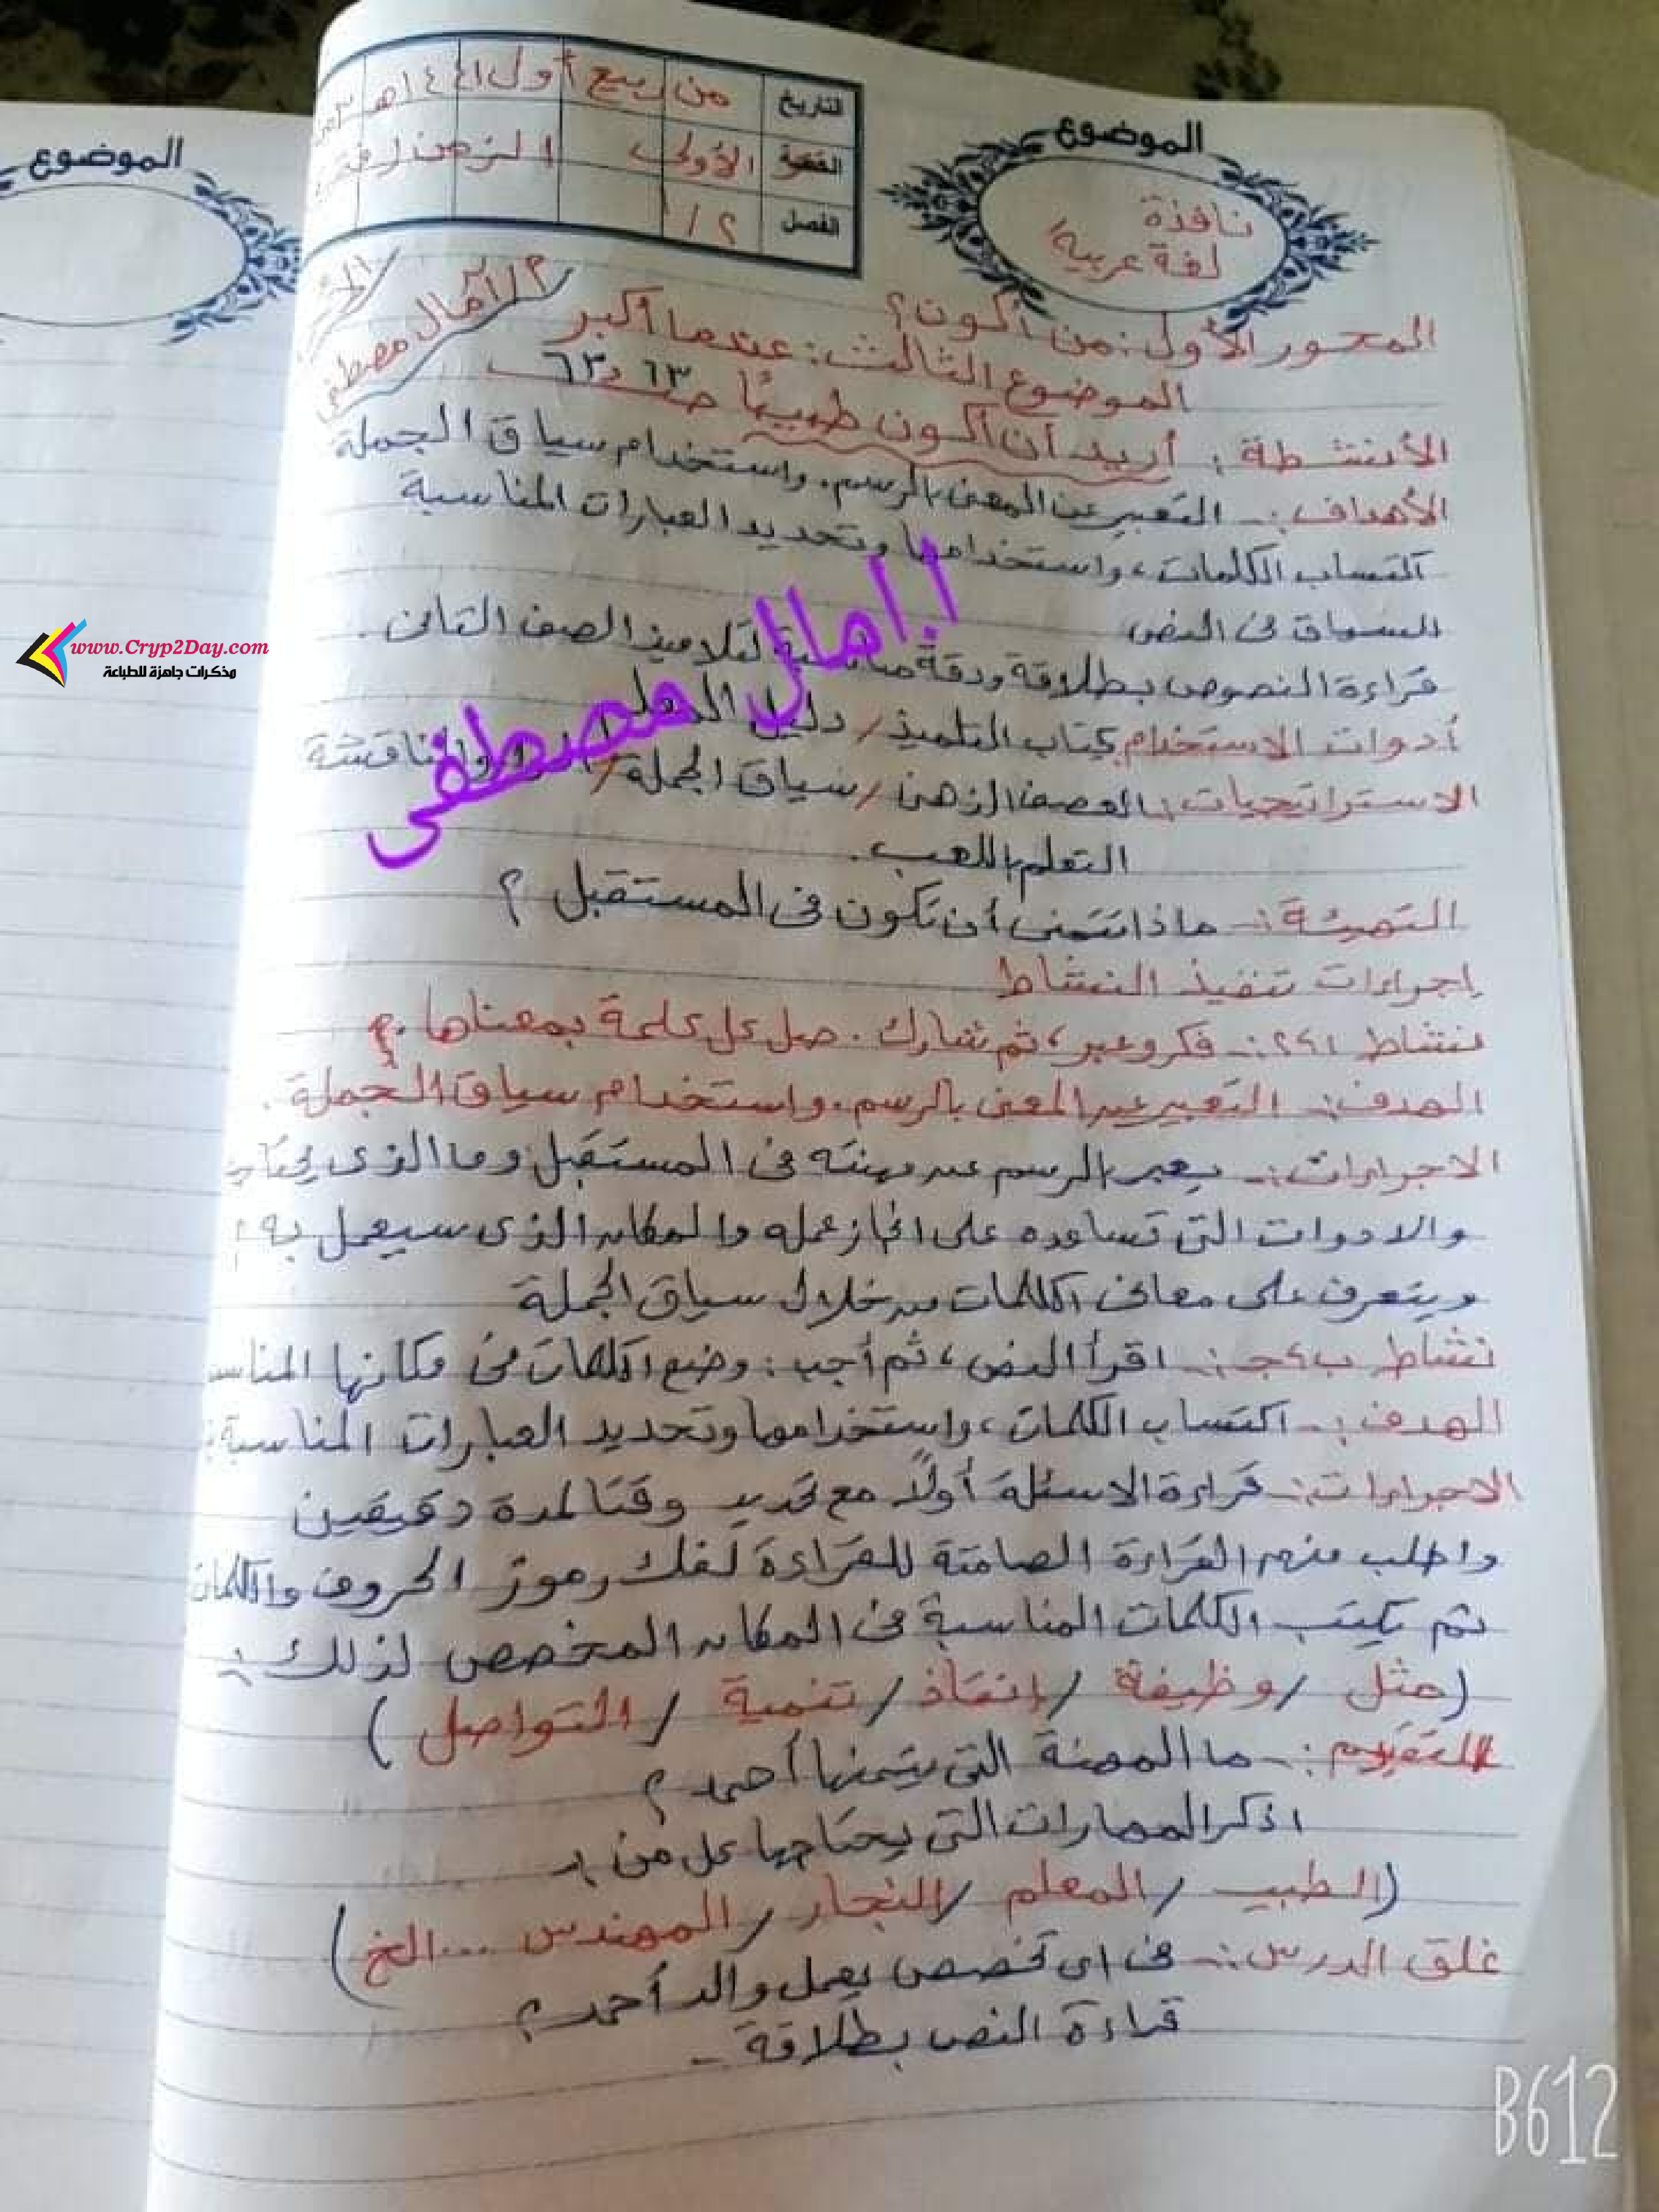 الموضوع
نافذة
لغة عربية
التاريخ من ربيع أول ١٤٤١هـ
الفترة الأولى الزمن
الفصل ٢/١
الموضوع
المحور الأول: من أكون؟
الموضوع الثالث: عندما أكبر
أ/ آمال مصطفى
الأنشطة: أريد أن أكون طبيبًا صـ ٦٣
الأهداف:- التعبير عن المعنى بالرسم. واستخدام سياق الجملة
اكتساب الكلمات، واستخدامها وتحديد العبارات المناسبة
السياق فى النص
قراءة النصوص بطلاقة ودقة مناسبة لتلاميذ الصف الثانى.
أدوات الاستخدام: كتاب التلميذ/ دليل المعلم
الاستراتيجيات: العصف الذهنى/ سياق الجملة/ والمناقشة
التعلم باللعب.
أ. امال مصطفى
التهيئة:- ماذا تتمنى أن تكون فى المستقبل ؟
إجراءات تنفيذ النشاط
نشاط ٢٤١:- فكر وعبر، ثم شارك. صل كل كلمة بمعناها.
الهدف:- التعبير عن المعنى بالرسم. واستخدام سياق الجملة.
الاجراءات:- يعبر بالرسم عن مهنته فى المستقبل وما الذى
والادوات التى تساعده على انجاز عمله والمكان الذى سيعمل به
ويتعرف على معانى الكلمات من خلال سياق الجملة
نشاط ب،ج:- اقرأ النص، ثم أجب: وضع الكلمات فى مكانها
الهدف:- اكتساب الكلمات، واستخدامها وتحديد العبارات المناسبة
الاجراءات:- قراءة الاسئلة أولاً مع تحديد وقتا لمدة دقيقين
واطلب منهم القراءة الصامتة للقراءة لفك رموز الحروف والكلمات
ثم يكتب الكلمات المناسبة فى المكان المخصص لذلك:
(مثل /وظيفة /إنقاذ/ تنمية / التواصل )
التقييم:- ما المهنة التى يتمنها أحمد ؟
اذكر المهارات التى يحتاجها كل من :-
(الطبيب / المعلم /النجار/ المهندس ...الخ)
غلق الدرس:- فى اى تخصص يعمل والد أحمد ؟
قراءة النص بطلاقة -
www.Cryp2Day.com
مذكرات جاهزة للطباعة
B612